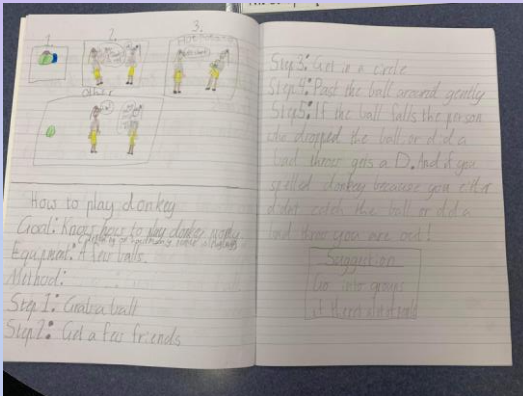 1.
2.
3.
Other
How to play donkey
Goal: Know how to play donkey
Equipment: A few balls.
Method:
Step 1: Grab a ball
Step 2: Get a few friends
Step 3: Get in a circle
Step 4: Past the ball around gently
Step 5: If the ball falls the person
who dropped the ball or did a
bad throw gets a D. And if you
spelled donkey because you
didnt catch the ball or did a
bad throw you are out!
Suggestion
Go into groups